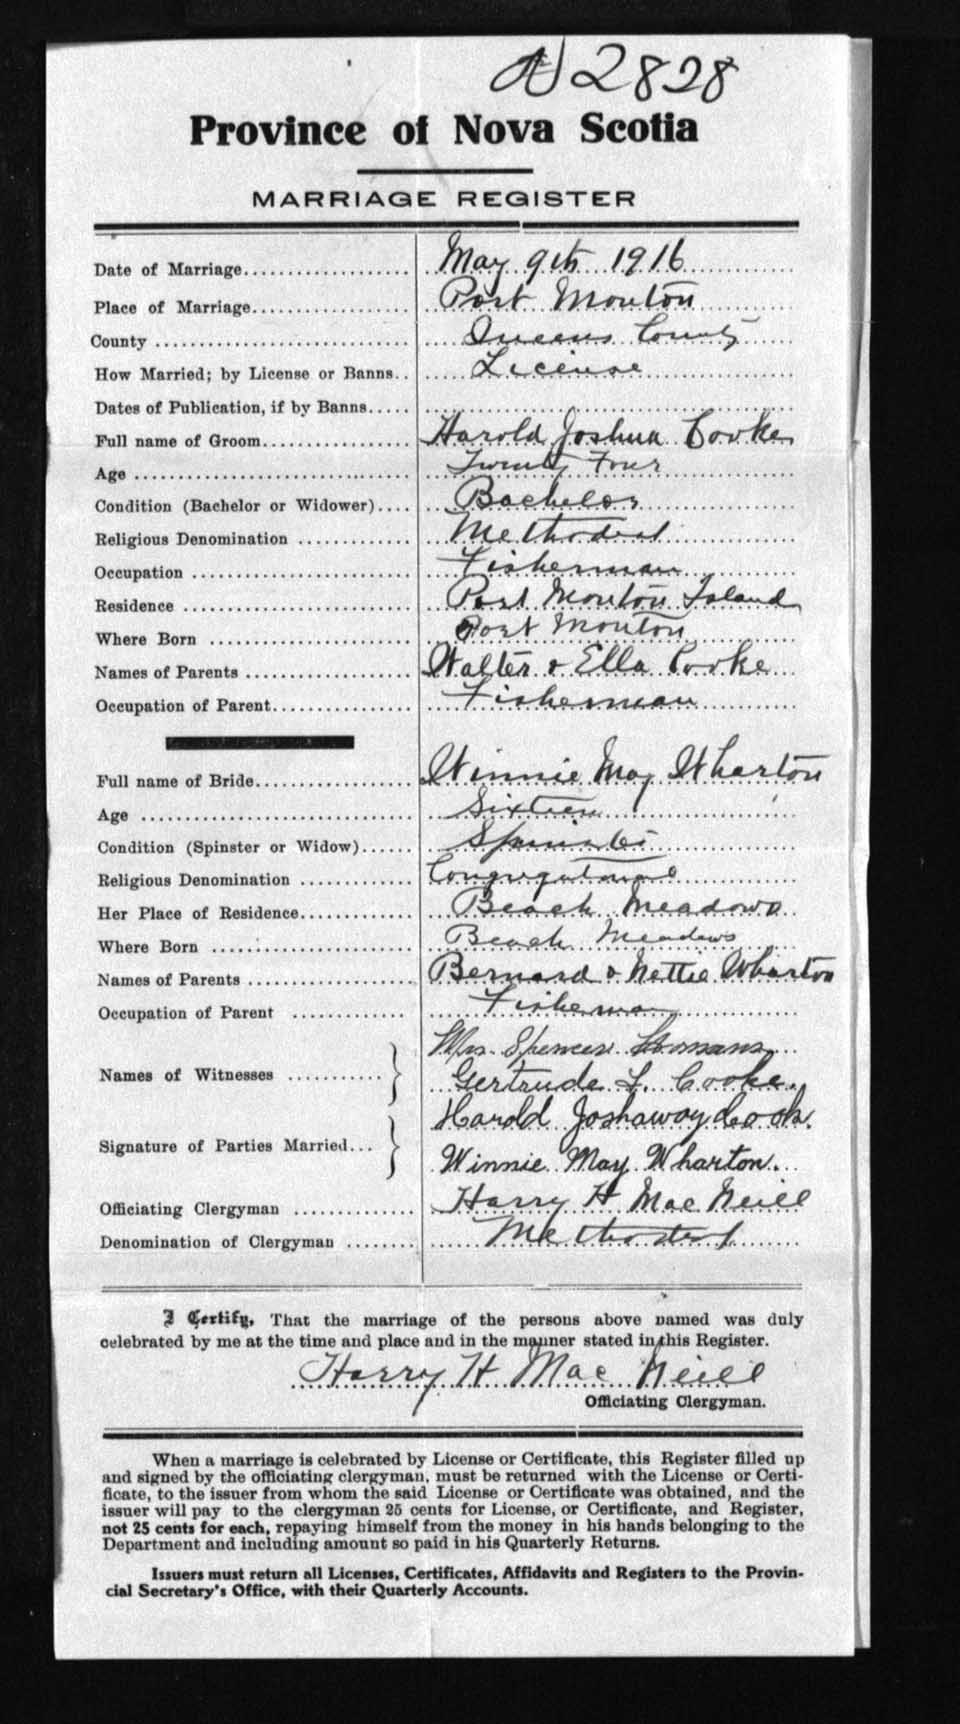 2828
Province of Nova Scotia
MARRIAGE REGISTER
Date of Marriage.................... May 9th 1916
Place of Marriage.................... Port Mouton
County ............................ Queens County
How Married; by License or Banns.. License
Dates of Publication, if by Banns.....
Full name of Groom................ Harold Joshua Cooke
Age ............................ Twenty Four
Condition (Bachelor or Widower).... Bachelor
Religious Denomination ............ Methodist
Occupation ...................... Fisherman
Residence ........................ Port Mouton Island
Where Born ...................... Port Mouton
Names of Parents .................. Walter & Ella Cooke
Occupation of Parent................ Fisherman
Full name of Bride.................. Winnie May Wharton
Age ............................ Sixteen
Condition (Spinster or Widow)...... Spinster
Religious Denomination ............ Congregational
Her Place of Residence............. Beach Meadows
Where Born ...................... Beach Meadows
Names of Parents .................. Bernard & Nettie Wharton
Occupation of Parent ............ Fisherman
Mrs. Spencer
Names of Witnesses ............ }
Gertrude L. Cooke.
Harold Joshaway Cook.
Signature of Parties Married... }
Winnie May Wharton.
Officiating Clergyman .............. Harry H MacNeill
Denomination of Clergyman ........ Methodist
I Certify, That the marriage of the persons above named was duly
celebrated by me at the time and place and in the manner stated in this Register.
Harry H MacNeill
Officiating Clergyman.
When a marriage is celebrated by License or Certificate, this Register filled up
and signed by the officiating clergyman, must be returned with the License or Certi-
ficate, to the issuer from whom the said License or Certificate was obtained, and the
issuer will pay to the clergyman 25 cents for License, or Certificate, and Register,
not 25 cents for each, repaying himself from the money in his hands belonging to the
Department and including amount so paid in his Quarterly Returns.
Issuers must return all Licenses, Certificates, Affidavits and Registers to the Provin-
cial Secretary's Office, with their Quarterly Accounts.